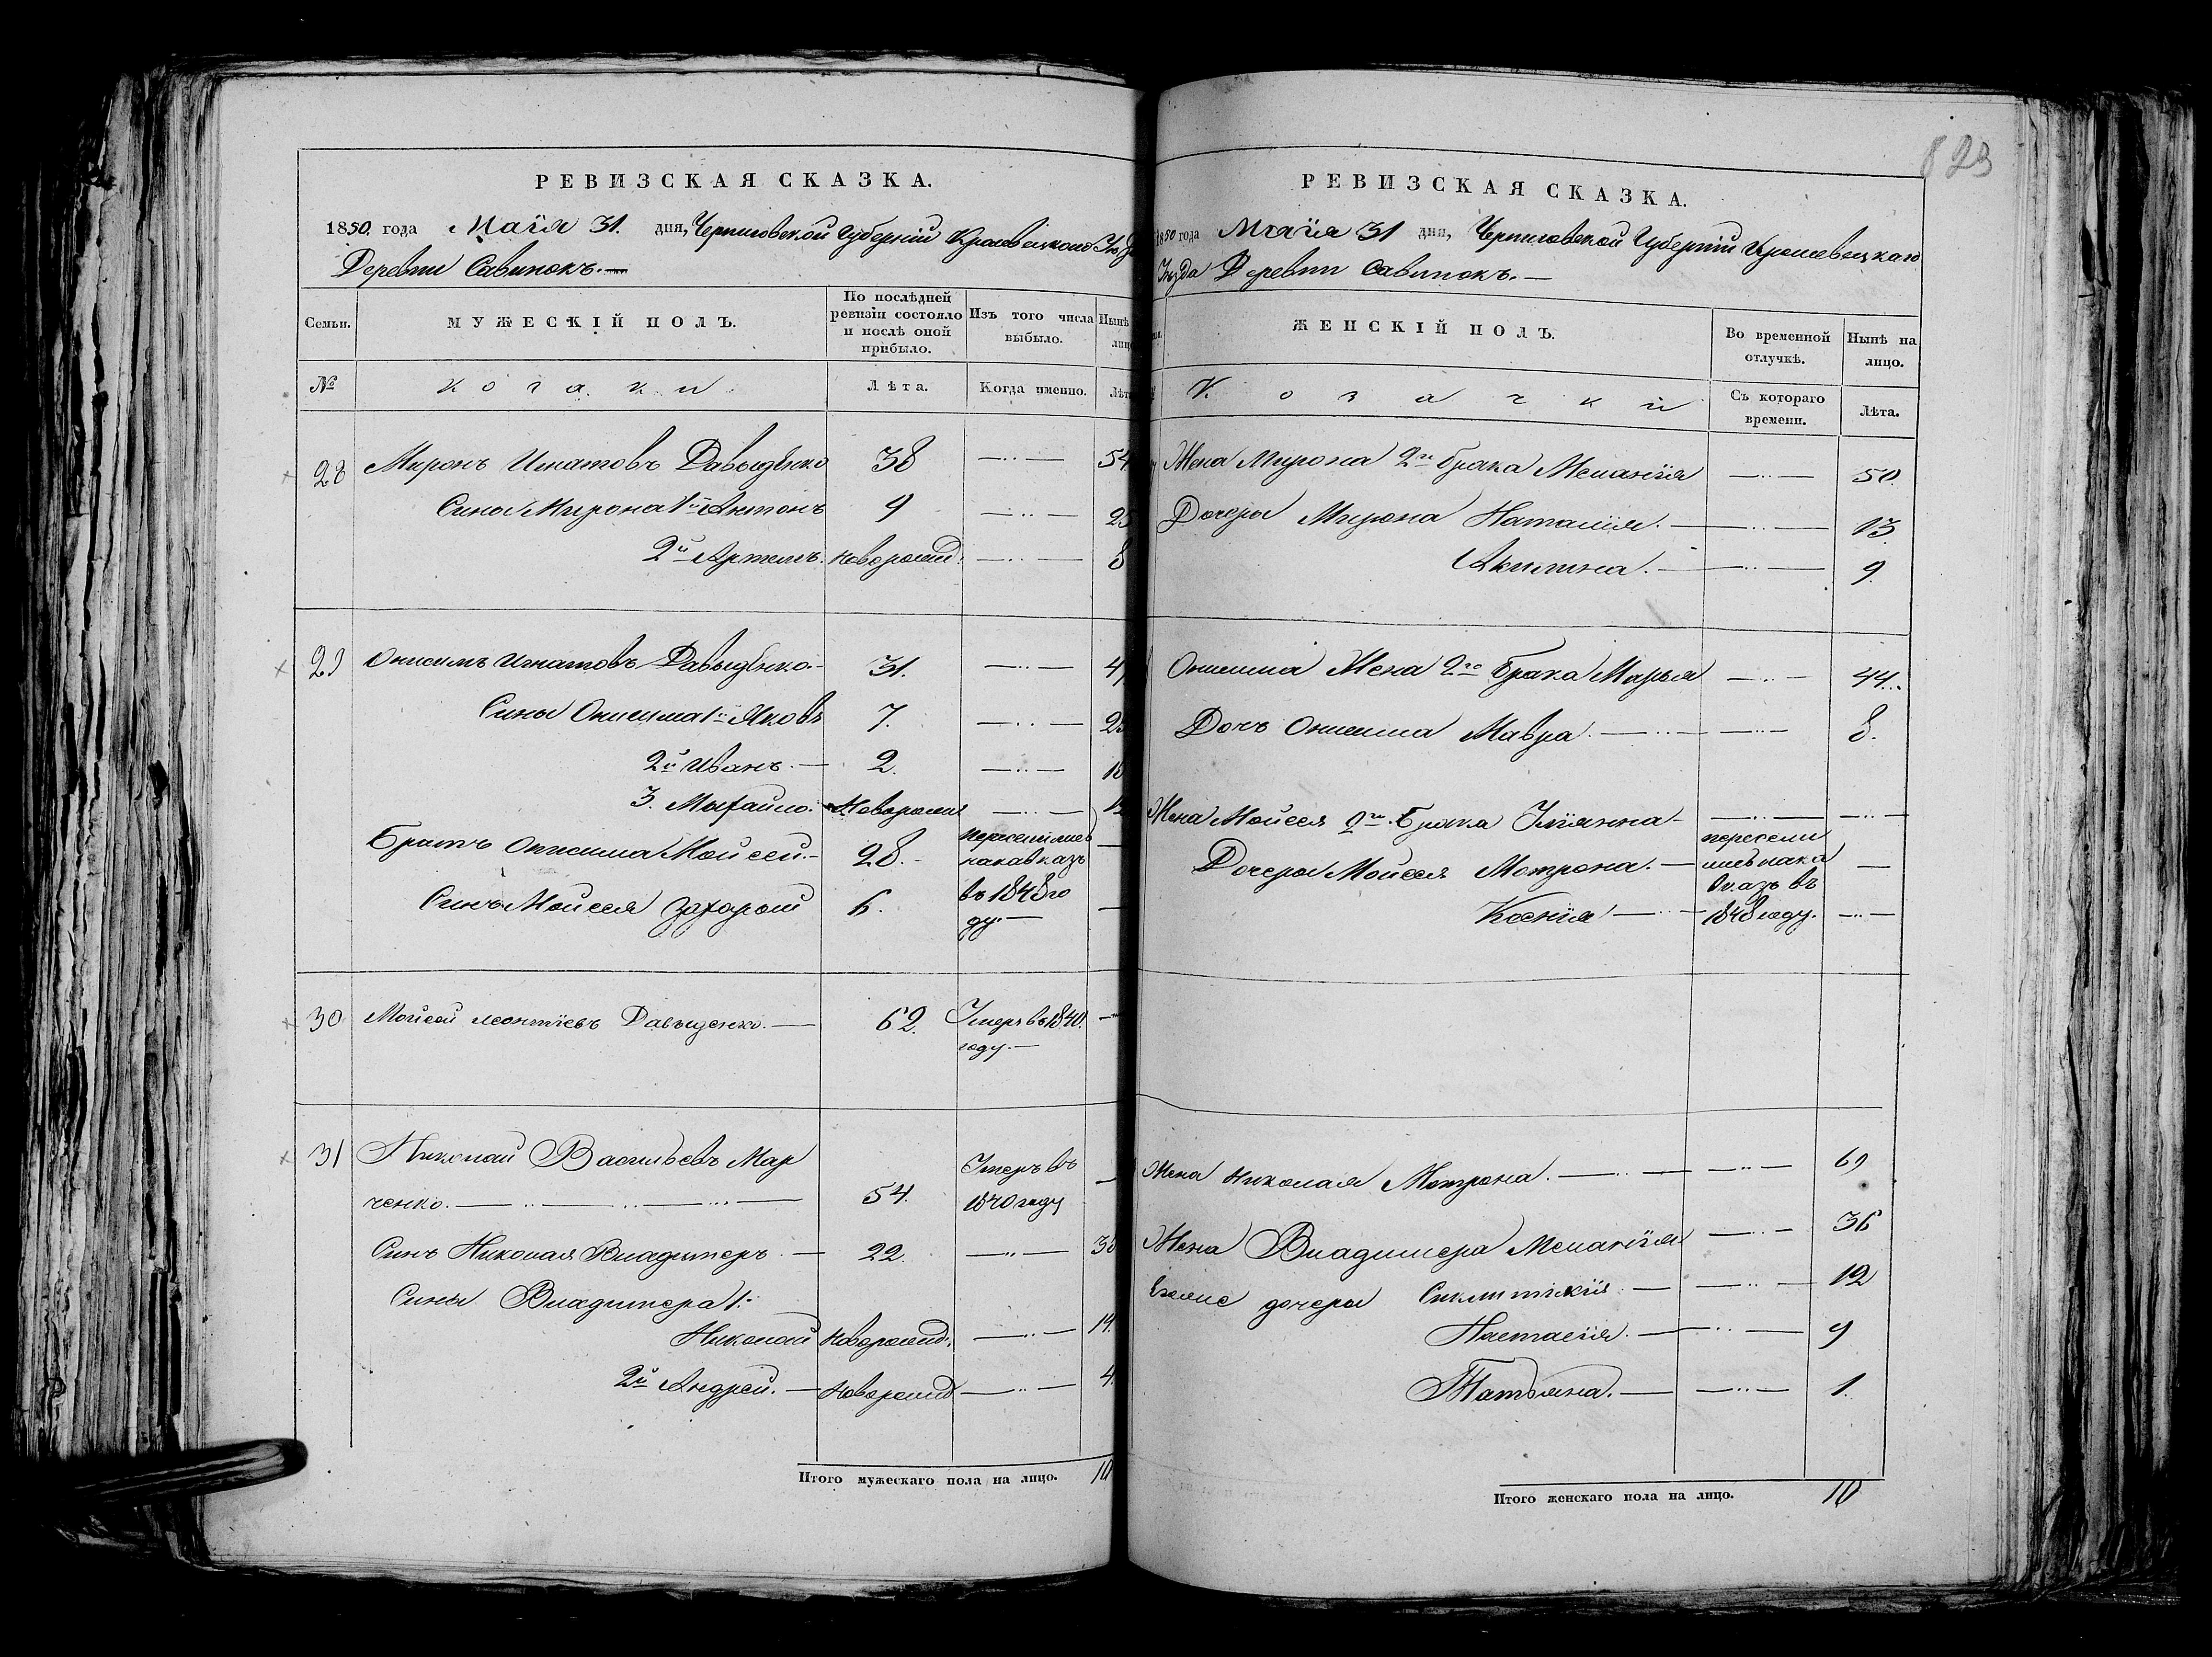 823
РЕВИЗСКАЯ СКАЗКА.
1850 года Маія 31. дня, Черниговской Губерніи Кролевецкого
Деревни Савинокъ.
Семьи.
МУЖЕСКІЙ ПОЛЪ.
По послѣдней ревизіи состояло и послѣ оной прибыло.
Изъ того числа выбыло.
Нынѣ
№
козаки
Лѣта.
Когда именно.
28 Миронъ Игнатовъ Давыденко 38 —..— 54
Сины Мирона 1й Антонъ 9 —..— 25
2й Артемъ. Новорожд. —..— 8
29 Онисимъ Игнатовъ Давыденко 31. —..—
Сины Онисима 1й Яковъ 7. —..—
2й Иванъ. — 2. —..—
3. Михайло. Новорожд —..—
Братъ Онисима Мойсей. 28. переселились
накавказъ
Синъ Мойсея Захарій 6. въ 1848 го
ду. —
30 Мойсей Леонтіевъ Давыденко. — 62. Умеръ въ 1840.
году. —
31 Николай Васильевъ Мар
ченко. 54. Умеръ въ
1840 году
Синъ Николая Владимеръ. — 22. —..—
Сины Владимера 1й
Николай Новорожд. —..— 14.
2й Андрей. — Новорожд —..— 4.
Итого мужескаго пола на лицо. 10
РЕВИЗСКАЯ СКАЗКА.
1850 года Маія 31 дня, Черниговской Губерніи Кролевецкаго
Уѣзда Деревни Савинокъ. —
ЖЕНСКІЙ ПОЛЪ.
Во временной отлучкѣ.
Нынѣ на лицо.
Козачки
Съ котораго времени.
Лѣта.
Жена Мирона 2го брака Меланія —..— 50.
Дочеры Мирона Наталія. —..— 13
Акилина. —..— 9
Онисима Жена 2го брака Марья —..— 44.
Дочъ Онисима Мавра. —..— 8.
Жена Мойсея 2го Брака Уліянна —..— —..—
Дочеры Мойсея Мотрона. — пересели
лись нака
вказъ въ
Ксенія —..— 1848 году. —..—
Жена Николая Мотрона. —..— 69
Жена Владимера Меланія —..— 36
Егоже дочеры Синклитикія. —..— 12
Настасія. —..— 9
Татьяна. —..— 1.
Итого женскаго пола на лицо. 10